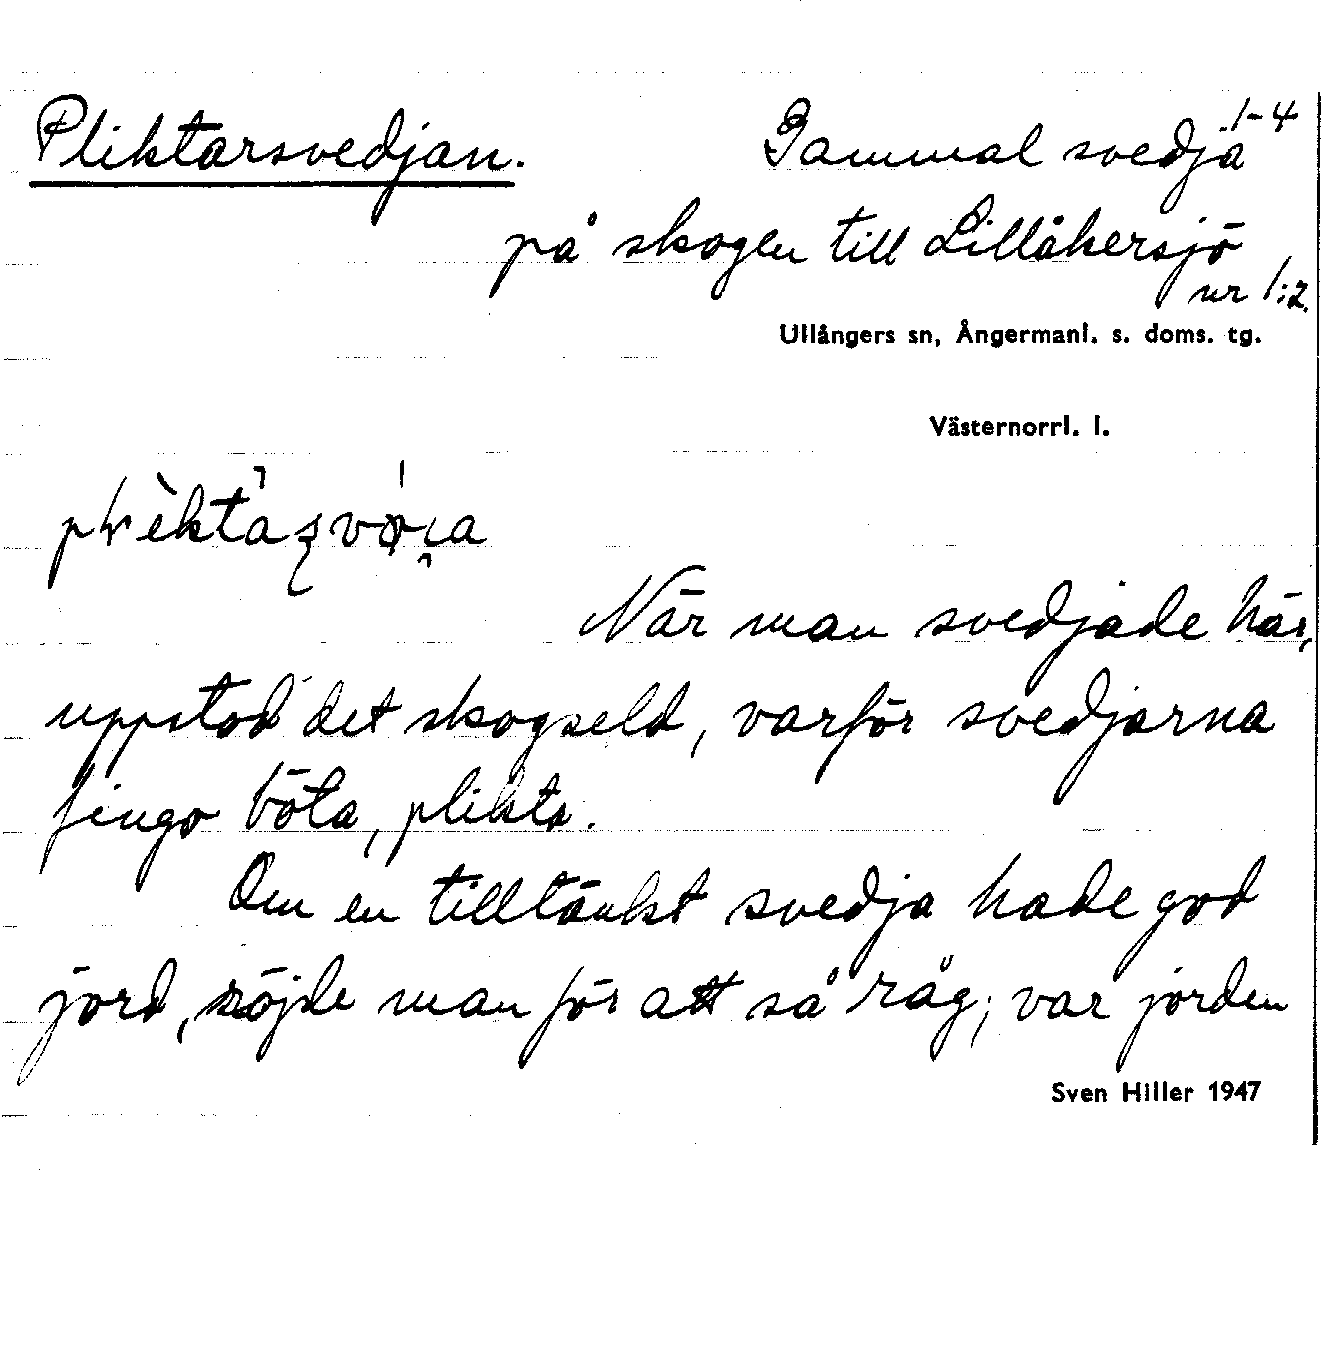 Pliktarsvedjan. Gammal svedja 1-4
på skogen till Lillåkersjö
nr 1:2.
Ullångers sn, Ångermanl. s. doms. tg.
Västernorrl. l.
När man svedjade här,
uppstod det skogseld, varför svedjarna
fingo böta, plikta.
Om en tilltänkt svedja hade god
jord, röjde man för att så råg; var jorden
Sven Hiller 1947